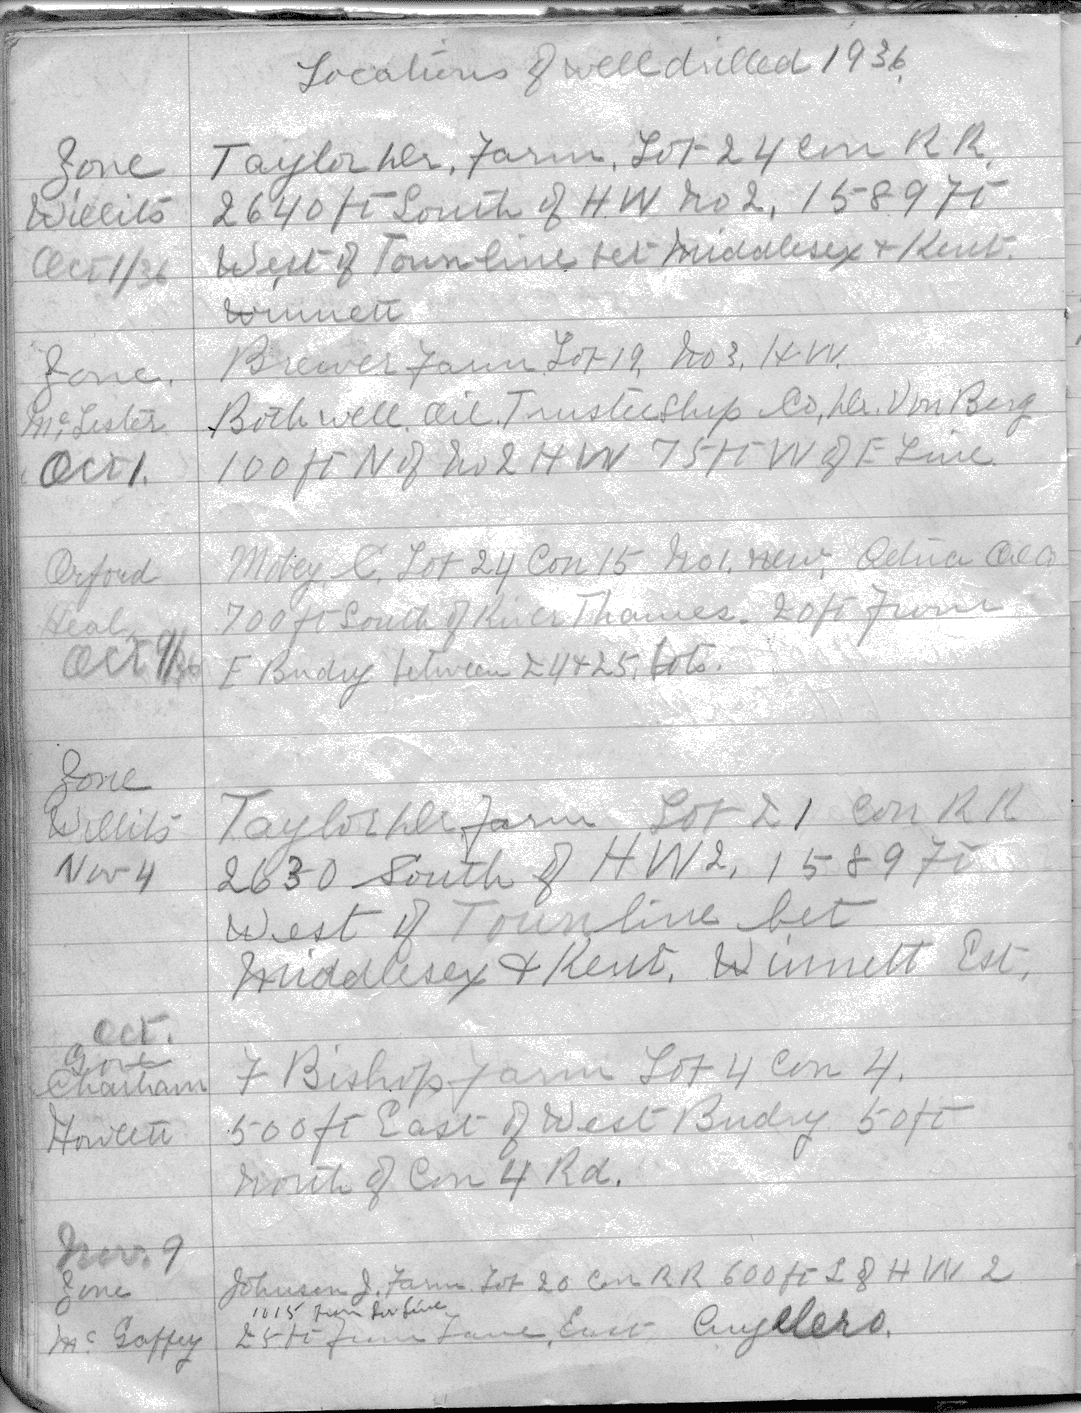 Locations of well drilled 1936.
Zone Taylor Dr. Farm. Lot 24 Con R R.
Willits 2640 ft South of H W No 2, 1589 ft
Oct 1/36 West of Townline bet Middlesex + Kent.
Winnett
Zone. Brewer Farm Lot 19, No 3, H.W.
McLister Bothwell Oil Trusteeship Co, Dr. Von Berg
Oct 1. 100 ft N of No 2 H W 75 ft W of E Line
Orford Mobey C. Lot 24 Con 15 No 1. new,
Heal 700 ft South of River Thames. 20 ft from
Oct 9/36 E Bndry between 24 + 25. Lots.
Zone
Willits Taylor Dr Farm Lot 21 Con R R
Nov 4 2630 South of H W 2, 1589 ft
West of Townline bet
Middlesex + Kent. Winnett Est.
Oct.
Gore
Chatham F Bishop Farm Lot 4 Con 4.
Howlett 500 ft East of West Bndry 50 ft
North of Con 4 Rd.
Nov. 9
Zone Johnson J. Farm Lot 20 Con R R 600 ft S of H W 2
1015 from
McGaffey 25 ft from Lane, East